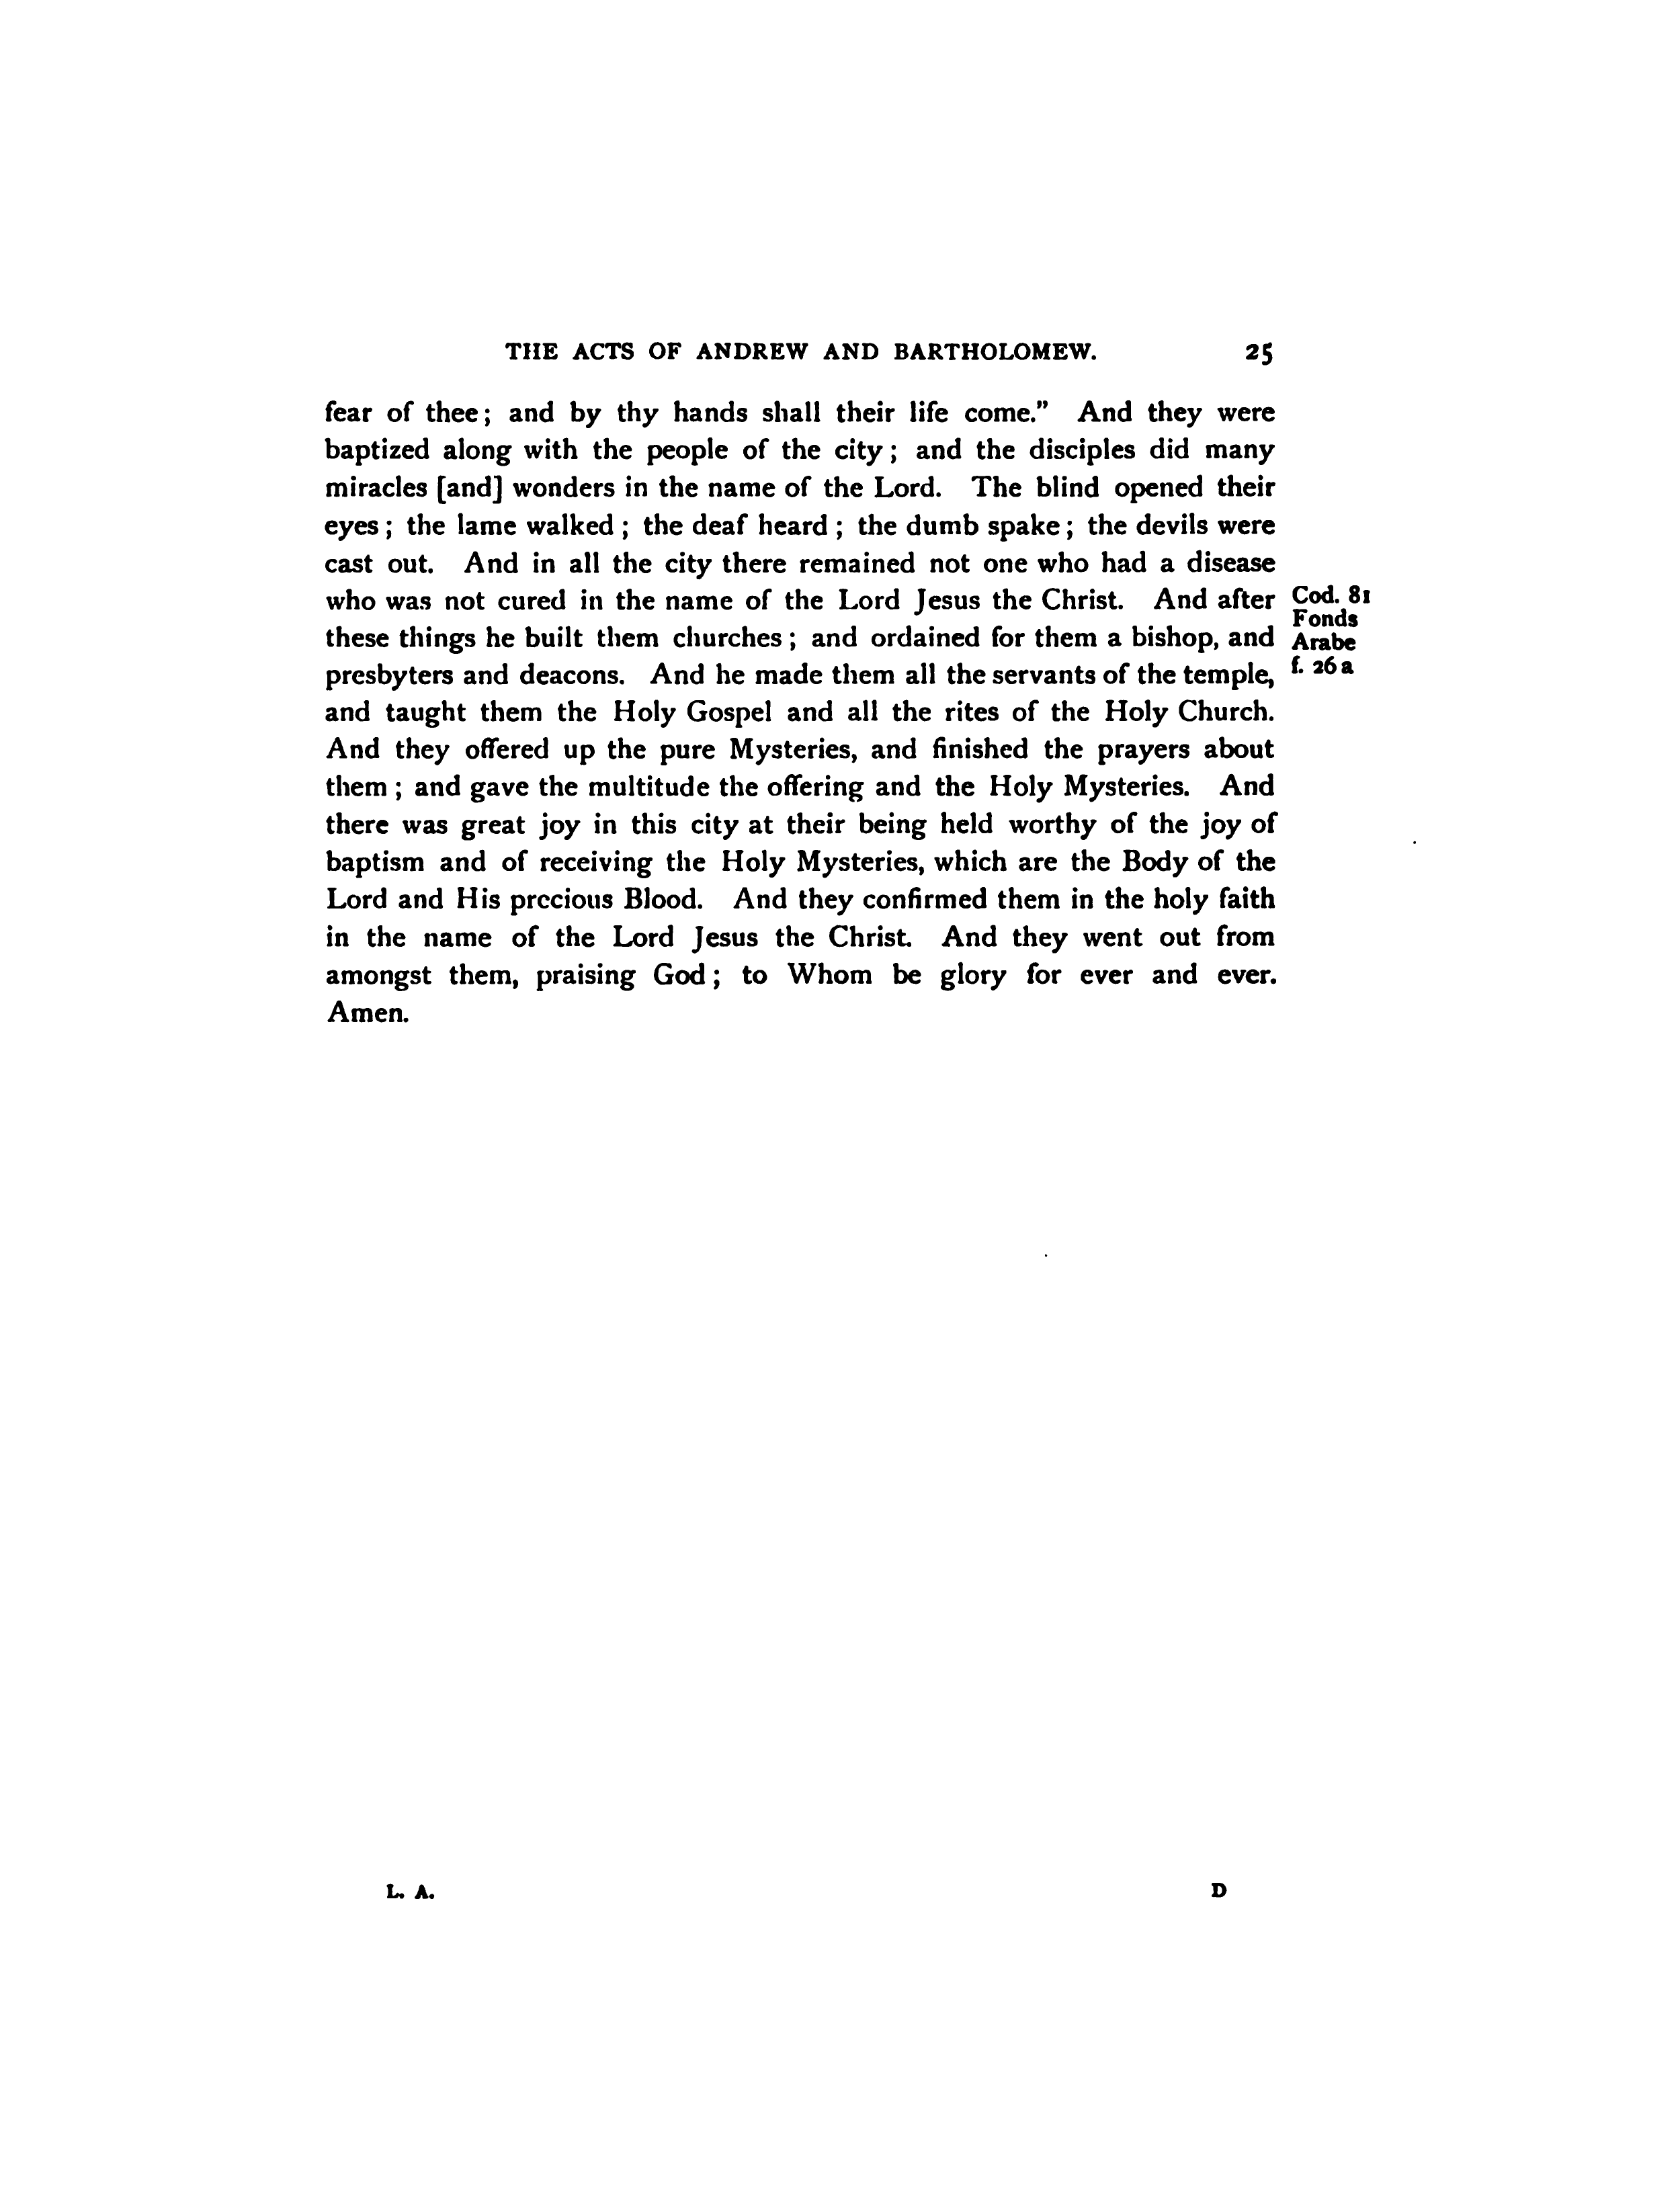 THE ACTS OF ANDREW AND BARTHOLOMEW. 25
fear of thee; and by thy hands shall their life come." And they were
baptized along with the people of the city; and the disciples did many
miracles [and] wonders in the name of the Lord. The blind opened their
eyes; the lame walked; the deaf heard; the dumb spake; the devils were
cast out. And in all the city there remained not one who had a disease
who was not cured in the name of the Lord Jesus the Christ. And after
these things he built them churches; and ordained for them a bishop, and
presbyters and deacons. And he made them all the servants of the temple,
and taught them the Holy Gospel and all the rites of the Holy Church.
And they offered up the pure Mysteries, and finished the prayers about
them; and gave the multitude the offering and the Holy Mysteries. And
there was great joy in this city at their being held worthy of the joy of
baptism and of receiving the Holy Mysteries, which are the Body of the
Lord and His precious Blood. And they confirmed them in the holy faith
in the name of the Lord Jesus the Christ. And they went out from
amongst them, praising God; to Whom be glory for ever and ever.
Amen.
Cod. 81
Fonds
Arabe
f. 26 a
L. A. D